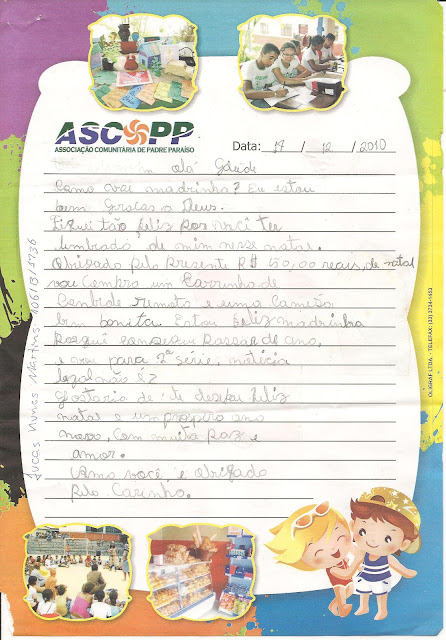 ASCOPP
ASSOCIAÇÃO COMUNITÁRIA DE PADRE PARAÍSO
Data: 17 / 12 / 2010
olá
Como vai madrinha? Eu estou
bem graças a Deus.
Fiquei tão feliz por você ter
lembrado de mim nesse natal.
Obrigado pelo presente R$ 150,00 reais, de natal
vou Compra um Carrinho de
Controle remoto e uma Camisa
bem bonita. Estou feliz madrinha
Porque consegui Passar de ano,
e vou para 2ª série, notícia
legal não é?
Gostaria de te desejar feliz
natal e um prospero ano
novo, Com muita Paz e
amor.
Amo você, e obrigado
Pelo Carinho.
Lucas Nunes Martins 106/8/4736
OLIGRAF LTDA. - TELEFAX: (33) 3734-1453